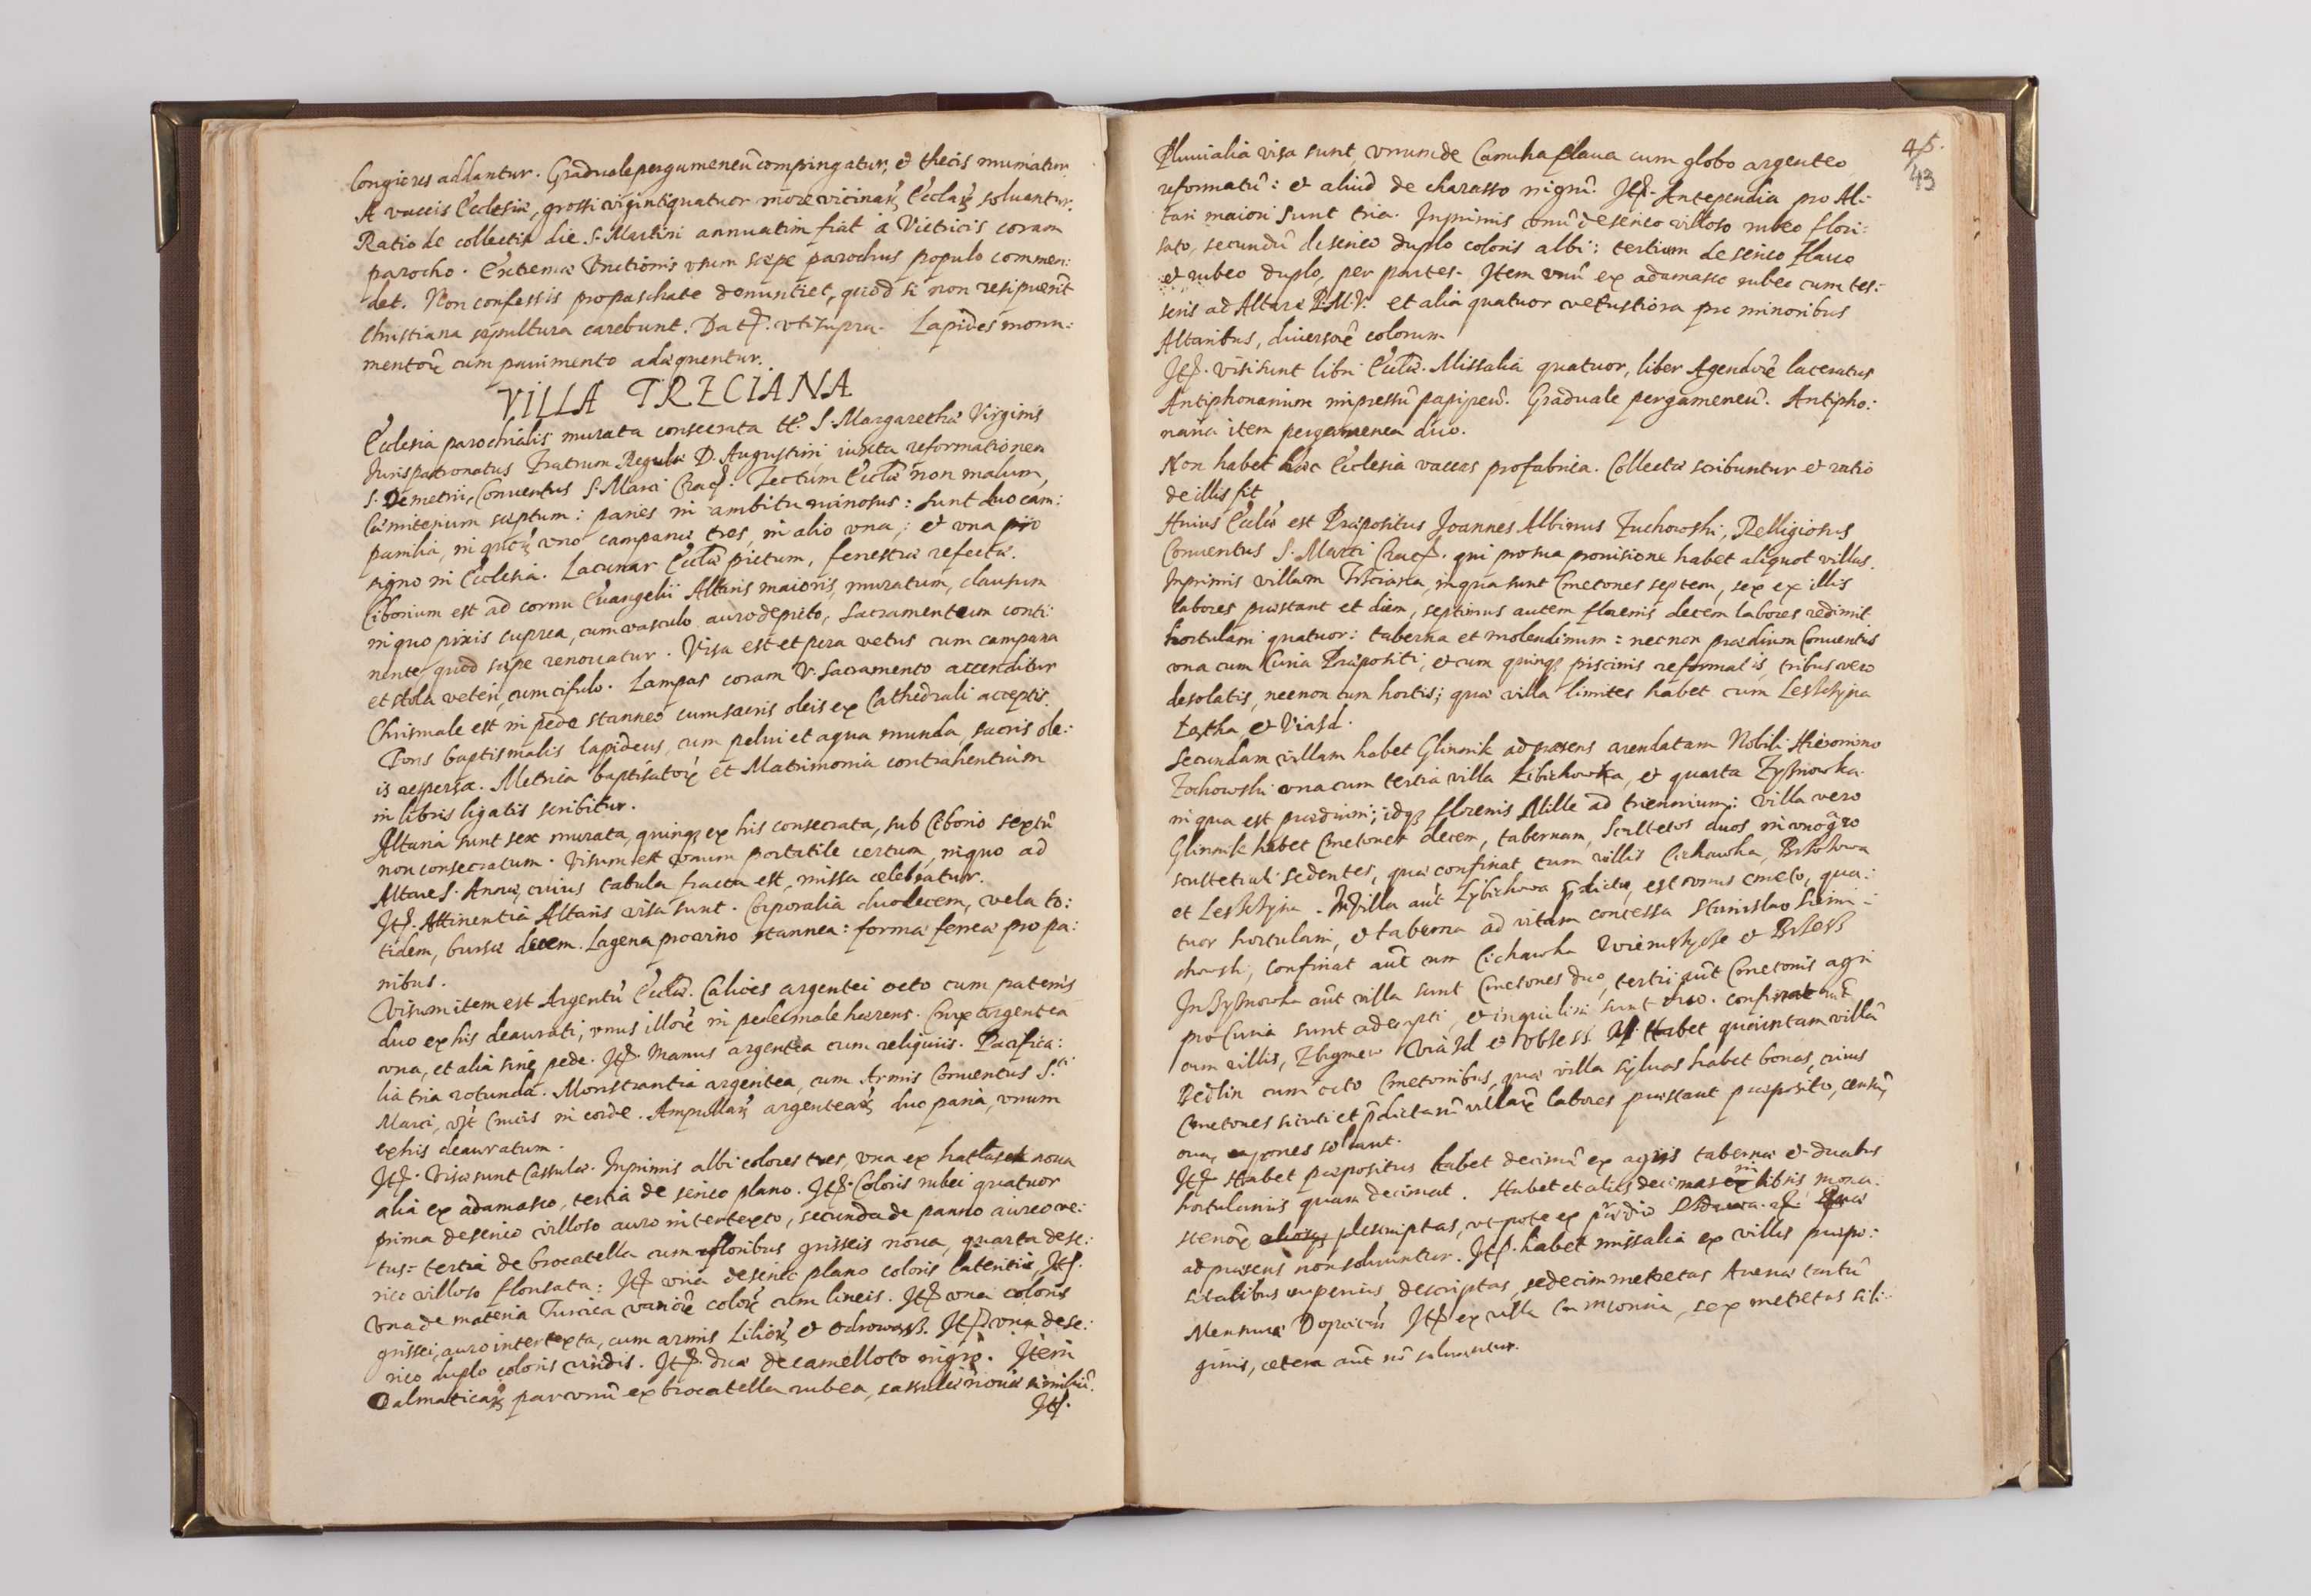 longiores addantur. Graduale pergameneū compingatur, et thecis muniatur.
A vaccis Ecclesiæ, grossi viginti quatuor more vicinarꝫ Ecclarꝫ soluantur.
Ratio de collectis die S. Martini annuatim fiat à Vietricis coram
parocho. Extremæ Vnctionis vsum sæpe parochus populo commen:
det. Non confessis pro paschate denuntiet, quòd si non resipuerīt
Christiana sepultura carebunt. Datꝭ. vti supra. Lapides monu:
mentorꝫ cum pauimento adæquentur.
VILLA TRECIANA
Ecclesia parochialis murata consecrata tt. S. Margarethæ Virginis
Juris patronatus Fratrum Regulæ D. Augustini iuxta reformationem
S. Demetrii, Conuentus S. Marci Cracꝭ. Tectum Ecclæ non malum,
Cæmiterium sæptum: paries in ambitu ruinosus: sunt duo cam:
panilia, in quorꝫ vno campanæ tres, in alio vna; et vna pro
signo in Ecclesia. Lacunar Ecclæ pictum, fenestræ refectæ.
Ciborium est ad cornu Euangelii Altaris maioris, muratum, clausum
in quo pixis cuprea, cum vasculo auro depicto, Sacramentum conti:
nente, quod sæpe renouatur. Visa est et pera vetus cum campana
et stola veteri, cum cifulo. Lampas coram V. Sacramento accenditur
Chrismale est in pede stanneo cum sacris oleis ex Cathedrali acceptis.
Fons baptismalis lapideus, cum pelui et aqua munda, sacris ole:
is respersa. Metrica baptisatorꝫ et Matrimonia contrahentium
in libris ligatis scribitur.
Altaria sunt sex murata, quinqꝫ ex his consecrata, sub Ciborio sextū
non consecratum. Visum est vnum portatile certum, in quo ad
Altare S. Annæ, cuius tabula fracta est, missa celebratur.
Itꝭ. Attinentia Altaris visa sunt. Corporalia duodecem, vela to:
tidem, bursæ decem. Lagena pro vino stannea: forma ferrea pro pa:
nibus.
Visum item est Argentū Ecclæ. Calices argentei octo cum patenis
duo ex his deaurati, vnus illorꝫ in pede male hærens. Crux argentea
vna, et alia sine pede. Itꝭ. Manus argentea cum reliquiis. Pacifica:
lia tria rotunda. Monstrantia argentea, cum Armis Conuentus S.ti
Marci, vꝫt Crucis in corde. Ampullarꝫ argentearꝫ duo paria, vnum
ex his deauratum.
Itꝭ. Visæ sunt Cassulæ. Inprimis albi coloris tres, vna ex hatłasek noua
alia ex adamasco, tertia de serico plano. Itꝭ. Coloris rubei quatuor
prima de serico villoso auro intertexto, secunda de panno aureo ve:
tus: tertia de brocatella cum floribus grisseis noua, quarta de se:
rico villoso florisata: Itꝭ vna de serico plano coloris lateritia, Itꝭ.
vna de materia Turcica variorꝫ colorꝫ cum lineis. Itꝭ vna coloris
grissei, auro intertexta, cum armis Liliorꝫ et Odrowąsz. Itꝭ vna de se:
rico duplo coloris viridis. Itꝭ. duæ de camelloto nigro. Item
Dalmaticarꝫ par vnū ex brocatella rubea, cassulæ nouæ similiū.
Itꝭ.
45.
43
Pluuialia visa sunt, vnum de Camcha flaua cum globo argenteo
reformatū: et aliud de charasso nigrū. Itꝭ. Antependia pro Al:
tari maiori sunt tria. Inprimis vnū de serico villoso rubeo flori:
sato, secundū de serico duplo coloris albi: tertium de serico flauo
et rubeo duplo, per partes. Item vnū ex adamasco rubeo cum tes:
seris ad Altare B.M.V. et alia quatuor vetustiora pro minoribus
Altaribus, diuersorꝫ colorum.
Itꝭ. visi sunt libri Ecclæ. Missalia quatuor, liber Agendorꝫ laceratus
Antiphonarium impressū papireū. Graduale pergameneū. Antipho:
naria item pergamenea duo.
Non habet hæc Ecclesia vaccas pro fabrica. Collectæ scribuntur et ratio
de illis fit
Huius Ecclæ est Præpositus Joannes Albinus Zuchowski, Relligiosus
Conuentus S. Marci Cracꝭ. qui pro sua prouisione habet aliquot villas.
Inprimis villam Trsciana, in qua sunt Cmetones septem, sex ex illis
labores præstant et diem, septimus autem florenis decem labores redimit.
hortulani quatuor: taberna et molendinum: necnon prædium Conuentus
vna cum Curia Præpositi, et cum quinqꝫ piscinis reformatis, tribus vero
desolatis, necnon cum hortis; quæ villa limites habet cum Leszczyna
Łąkta et Viasd.
Secundam villam habet Glinnik ad præsens arendatam Nobili Hieronimo
Zochowski vna cum tertia villa Łibichowka, et quarta Zyznowka
in qua est prædium; idqꝫ florenis Mille ad triennium: villa vero
Glinnik habet Cmetones decem, tabernam, Scultetos duos in vno agro
scultetiali sedentes, quæ confinat cum villis Cichawka, Brzozowa
et Leszczyna. In Villa aūt Lybichowa p̄dicta, est vnus cmeto, qua:
tuor hortulani, et taberna ad vitam concessa Stanislao
chowski, confinat aūt cum Cichawka et
In Zyznowka aūt villa sunt Cmetones duo, tertii aūt Cmetonis agri
pro Curia sunt adempti, et inquilini sunt duo. confinat aūt
cum villis, Viasd et Habet quintam villā
Bedlin cum octo Cmetonibus, quæ villa syluas habet bonas, cuius
Cmetones sicuti et p̄dictarū villarꝫ labores præstant præposito, censū,
oua, capones soluunt.
Itꝭ Habet præpositus habet decimā ex agris tabernæ et duabus
hortulaniis quam decimat. Habet et alias decimas in libris mona:
sterorꝫ descriptas, vt pote ex prædio quæ
ad præsens non soluuntur. Itꝭ. habet missalia ex villis præpo:
sitalibus superius descriptas, sedecim metretas Auenæ tantū
Mensuræ Itꝭ ex villa sex metretas sili:
ginis, cetera aūt nō soluuntur.